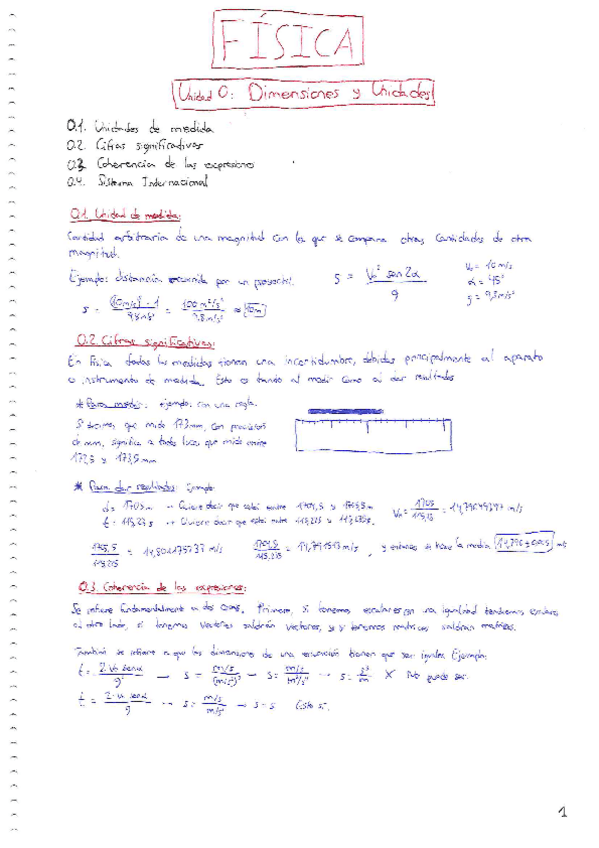 FÍSICA
Unidad 0: Dimensiones y Unidades
0.1. Unidades de medida
0.2. Cifras significativas
0.3. Coherencia de las expresiones
0.4. Sistema Internacional
0.1. Unidad de medida:
Cantidad arbitraria de una magnitud con la que se compara otras cantidades de otra
magnitud.
Ejemplo: distancia recorrida por un proyectil. S = V₀² sen 2α / g
V₀ = 10 m/s
α = 45°
g = 9,8 m/s²
S = (10 m/s)² · 1 / 9,8 m/s² = 100 m²/s² / 9,8 m/s² ≈ 10m
0.2. Cifras significativas:
En Física todas las medidas tienen una incertidumbre, debidas principalmente al aparato
o instrumento de medida. Esto es tanto al medir como al dar resultados
* Para medir: ejemplo: con una regla.
Si decimos que mide 173 mm, con precisión
de mm, significa a todas luces que mide entre
172,5 y 173,5 mm
* Para dar resultados: Ejemplo
d = 1705 m → Quiere decir que está entre
t = 115,23 s → Quiere decir que está entre 115,225 y
= 14,801175737 m/s
= 14,791513 m/s, y entonces se hace la media
0.3. Coherencia de las expresiones:
Se refiere fundamentalmente a dos cosas. Primero, si tenemos escalares en una igualdad tendremos escalares
al otro lado, si tenemos vectores saldrán vectores, y si tenemos matrices saldrán matrices.
También se refiere a que las dimensiones de una ecuación tienen que ser iguales. Ejemplo:
t = 2·V₀ senα / g² → S = m/s / (m/s²)² → S = m/s / m²/s⁴ → S = s³/m X No puede ser.
t = 2·V₀ senα / g → S = m/s / m/s² → S = S Esto sí.
1